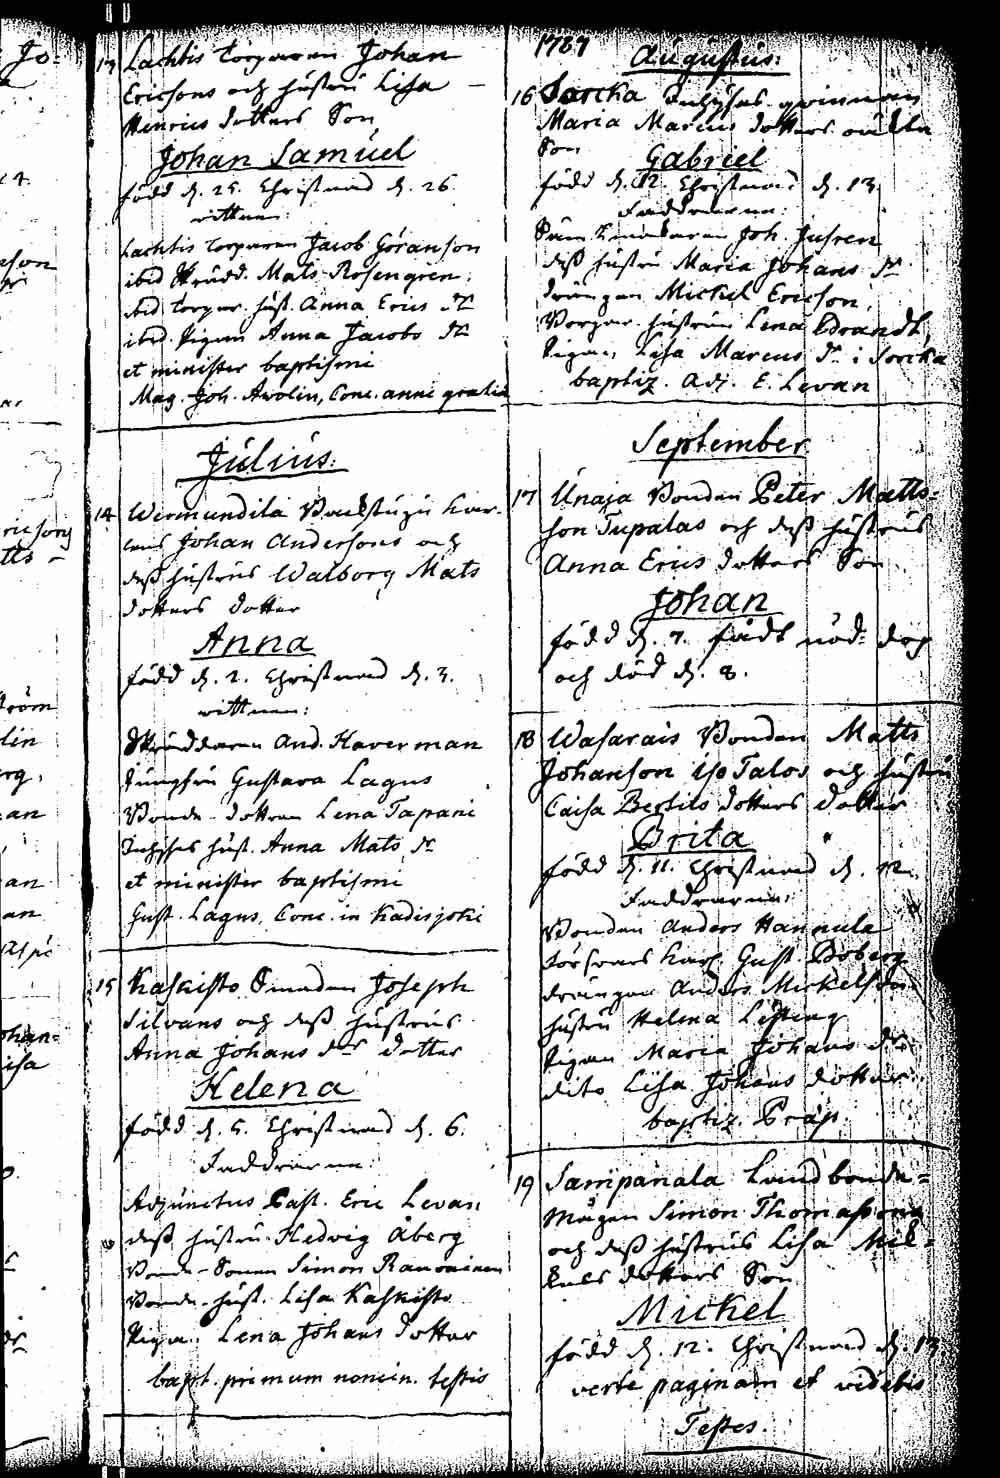 13 Lachtis Torparen Johan
Ericsons och hustru Lisa
Henrics dotters Son
Johan Samuel
född d. 25. Christnad d. 26.
vittnen:
Lachtis Torparen Jacob Göranson
ibid Skrädd. Mats Rosengren
ibid Torpar hust. Anna Erics dr
ibid. Pigan Anna Jacobs dr
et minister baptismi
Mag. Joh. Avolin, Conc. anni gratiæ
Julius:
14 Wermundila Backstugu kar-
lens Johan Andersons och
dess hustrus Walborg Mats
dotters dotter
Anna
född d. 2. Christnad d. 3.
vittnen:
Skräddaren And. Haverman
Jungfru Gustava Lagus
Bonde-dottren Lena Tapani
Inhyses hust. Anna Mats dr
et minister baptismi
Gust. Lagus, Conc. in Kadisjoki
15 Kaskisto Smeden Joseph
Silvans och dess hustrus
Anna Johans drs dotter
Helena
född d. 5. Christnad d. 6.
Faddrarne:
Adjunctus Past. Eric Levan
dess hustru Hedvig Åberg
Bonde-Sonen Simon
Bonde-hust. Lisa Kaskisto
Pigan Lena Johans dotter
bapt. primum nomin. testis
1787
Augustus:
16 Sorcka Inhyses-qvinnan
Maria Marcus dotters oäckta
Son
Gabriel
född d. 12. Christnad d. 13.
Faddrarne:
Joh. Jusren
dess hustru Maria Johans dr
drängen Mickel Ericson,
hustrun Lena Brandt,
Pigan, Lisa Marcus dr i Sorcka
baptiz. Adj. E. Levan
September
17 Unaja Bonden Peter Matts-
son Tupalas och dess hustrus
Anna Erics dotters Son
Johan
född d. 7. fådt nöd-dop
och död d. 8.
18 Wasarais Bonden Matts
Johanson iso Talos och hustru
Caisa Bertils dotters dotter
Brita
född d. 11. Christnad d. 12.
Faddrarne:
Bonden Anders Hannula
Gust. Boberg
drängen Anders Mickelson
hustru Helena
Pigan Maria Johans dr
dito Lisa Johans dotter
baptiz. Præp.
19 Sampanala Landbonde-
Mågen Simon Thomasons
och dess hustrus Lisa Mic-
kels dotters Son
Mickel
född d. 12. Christnad d. 13
verte paginam et videbis
Testes.